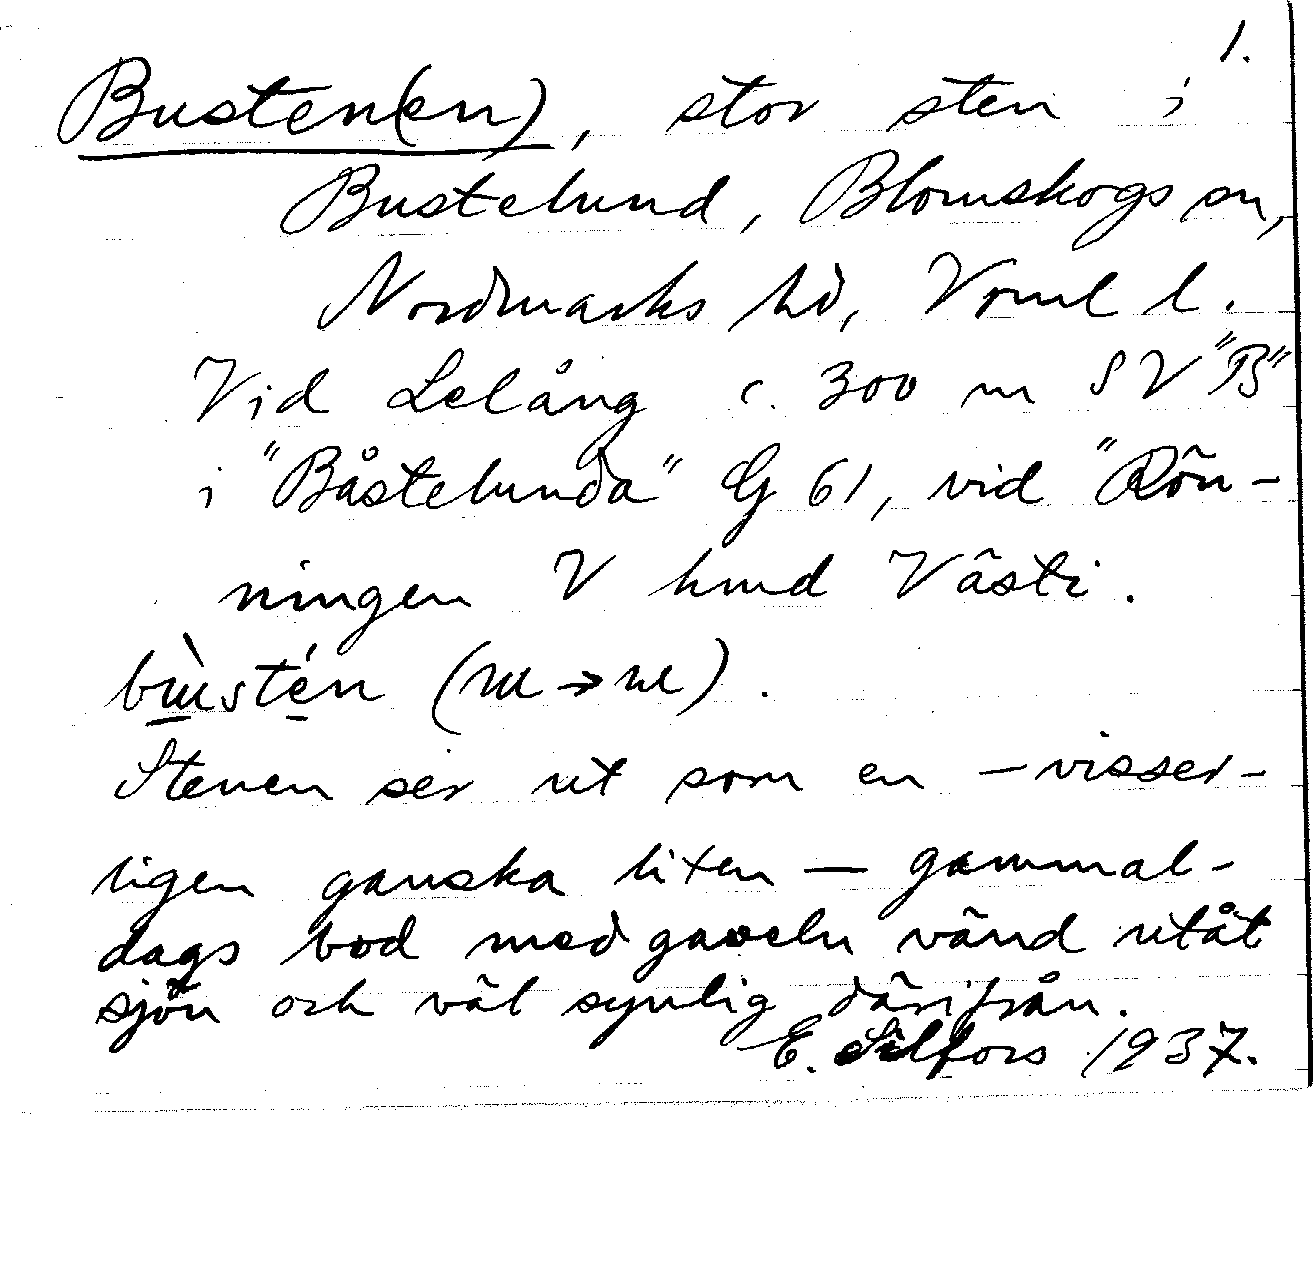 1.
Busten(en), stor sten i
Bustelund, Blomskogs sn,
Nordmarks hd, Vrml l.
Vid Lelång c. 300 m SV "B"
i "Båstelunda" G 61, vid "Rön-
ningen V hmd Västi.
(→).
Stenen ser ut som en – visser-
ligen ganska liten – gammal-
dags bod med gaveln vänd utåt
sjön och väl synlig därifrån.
E. Silfors 1937.